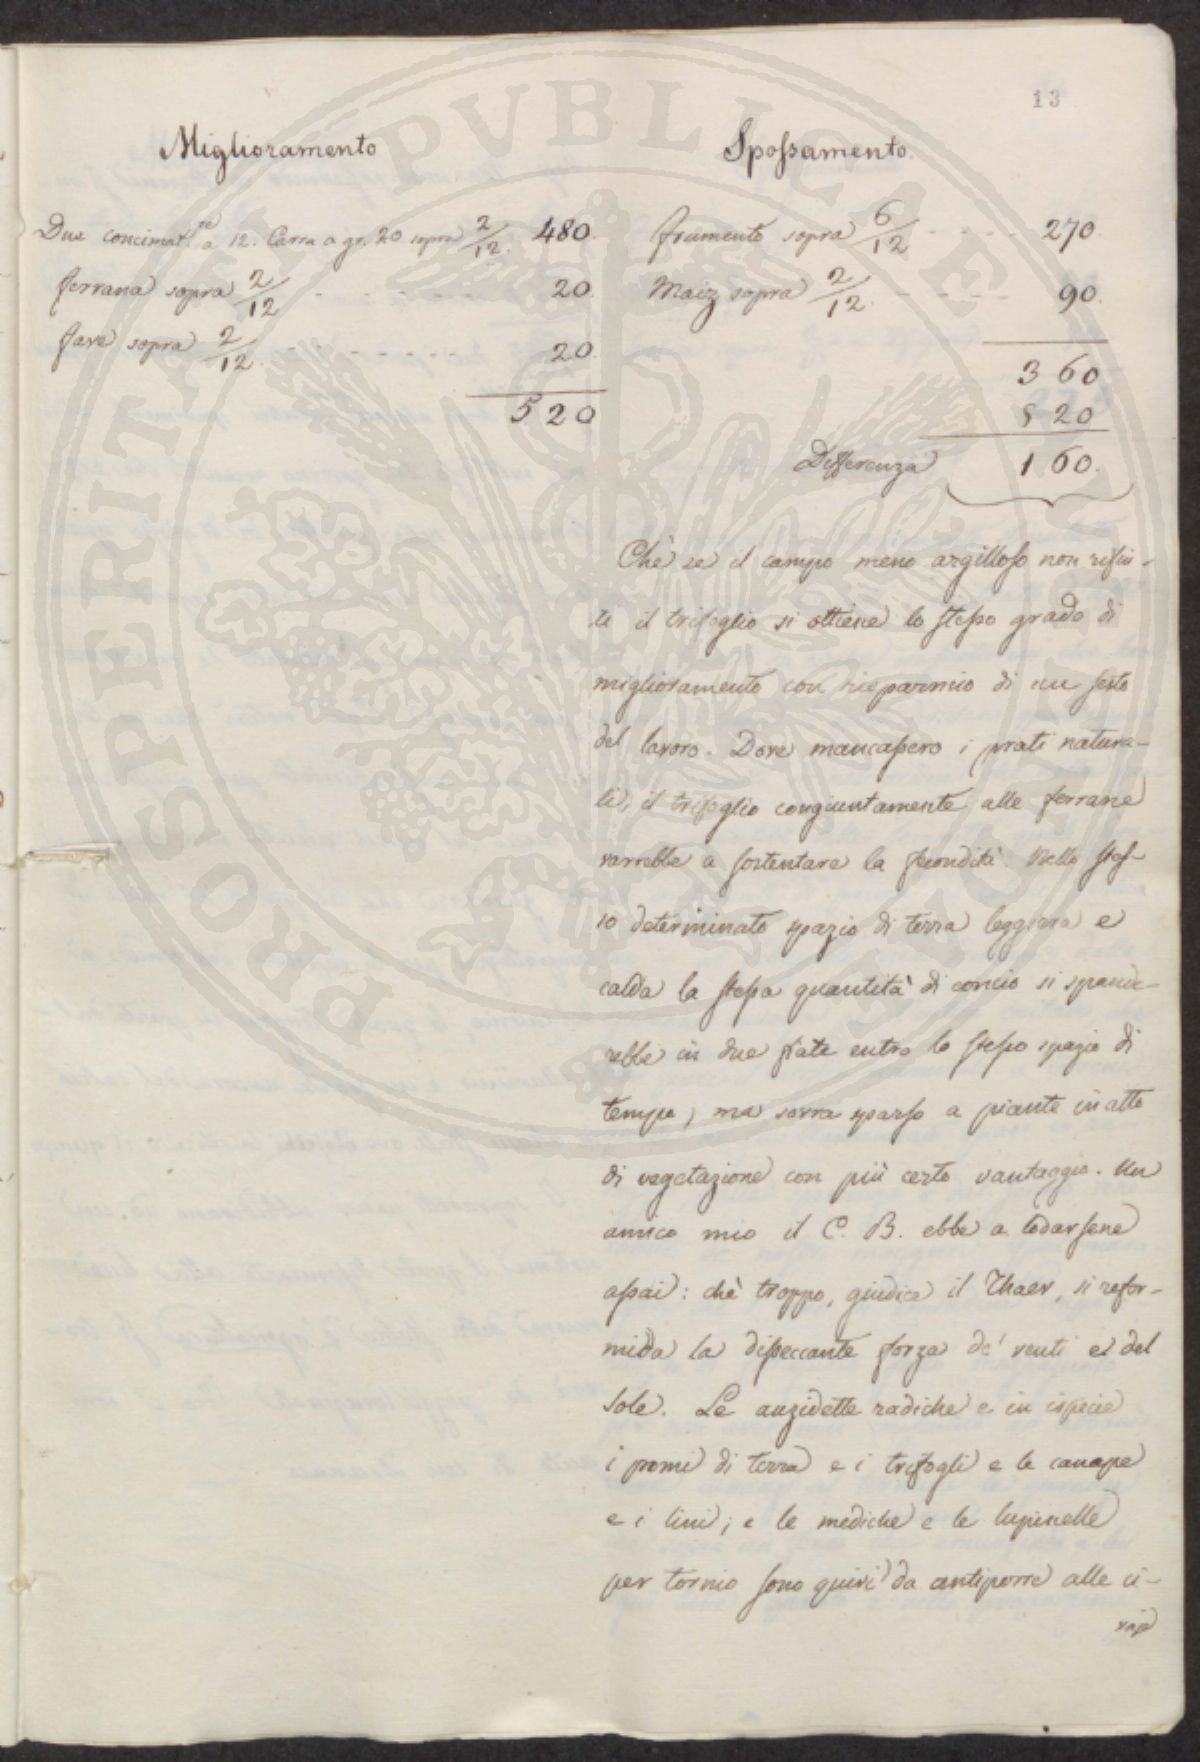 13
Miglioramento
Due concimat.re a 12. Carra a gr. 20 sopra 2/12. 480.
ferrana sopra 2/12 - - - - - - - 20.
fave sopra 2/12 - - - - - - - 20.
520
Spossamento.
frumento sopra 6/12 - - - - - 270.
Maiz sopra 2/12. - - - - - 90.
360
520
Differenza 160.
Chè se il campo meno argilloso non rifiu-
ti il trifoglio si ottiene lo stesso grado di
miglioramento con risparmio di un sesto
del lavoro. Dove mancassero i prati natura-
li, il trifoglio congiuntamente alle ferrane
varrebbe a sostentare la fecondità. Nello stes-
so determinato spazio di terra leggiera e
calda la stessa quantità di concio si spande-
rebbe in due fiate entro lo stesso spazio di
tempo, ma sovra sparso a piante in atto
di vegetazione con più certo vantaggio. Un
amico mio il C. B. ebbe a lodarsene
assai: chè troppo, giudica il Thaer, si refor-
mida la disseccante forza de' venti e del
sole. Le anzidette radiche e in ispecie
i pomi di terra e i trifogli e le canape
e i lini; e le mediche e le lupinelle
per tornio sono quivi da antiporre alle ci-
PROSPERITATI PVBLICAE AVGENDAE